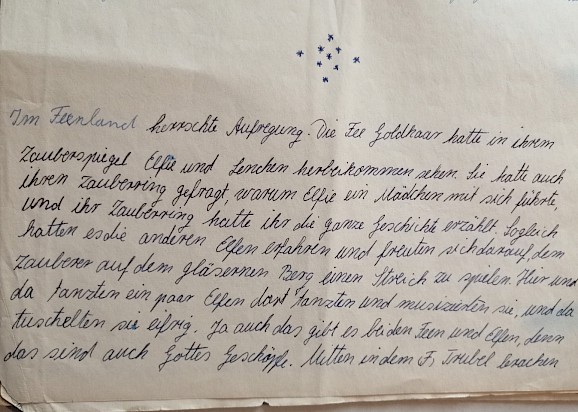 Im Feenland herrschte Aufregung. Die Fee Goldhaar hatte in ihrem
Zauberspiegel Elfie und Lenchen herbeikommen sehen. Sie hatte auch
ihren Zauberring gefragt, warum Elfie ein Mädchen mit sich führte,
und ihr Zauberring hatte ihr die ganze Geschichte erzählt. Sogleich
hatten es die anderen Elfen erfahren und freuten sich darauf, dem
Zauberer auf dem gläsernen Berg einen Streich zu spielen. Hier und
da tanzten ein paar Elfen dort tanzten und musizierten sie, und da
tuschelten sie eifrig. Ja auch das gibt es bei den Feen und Elfen, denn
das sind auch Gottes Geschöpfe. Mitten in dem Trubel brachen